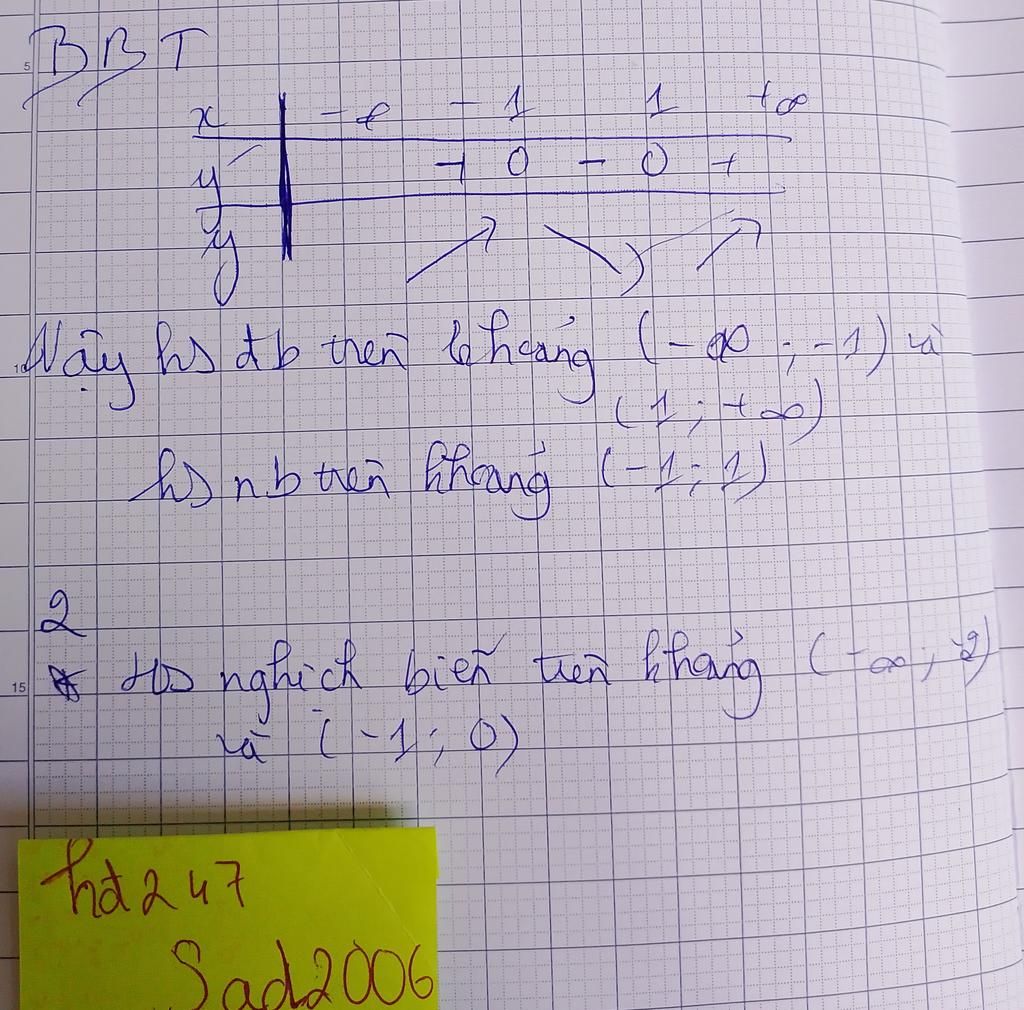 BBT
x -∞ -1 1 +∞
y' + 0 - 0 +
y
Vậy hs đb trên khoảng (-∞ ; -1) và
(1 ; +∞)
hs nb trên khoảng (-1 ; 1)
2
* Hs nghịch biến trên khoảng (-∞ ; -2)
và (-1 ; 0)
hd247
Sad2006